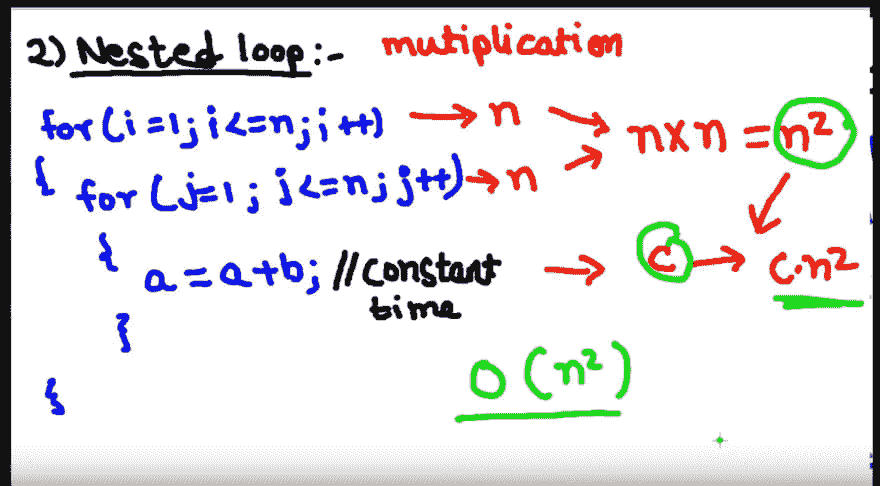 2) Nested loop:- mutiplication
for(i=1; i<=n; i++) → n
n×n = n²
{ for (j=1; j<=n; j++) → n
{
a = a+b; //constant time → c → c.n²
}
O(n²)
{